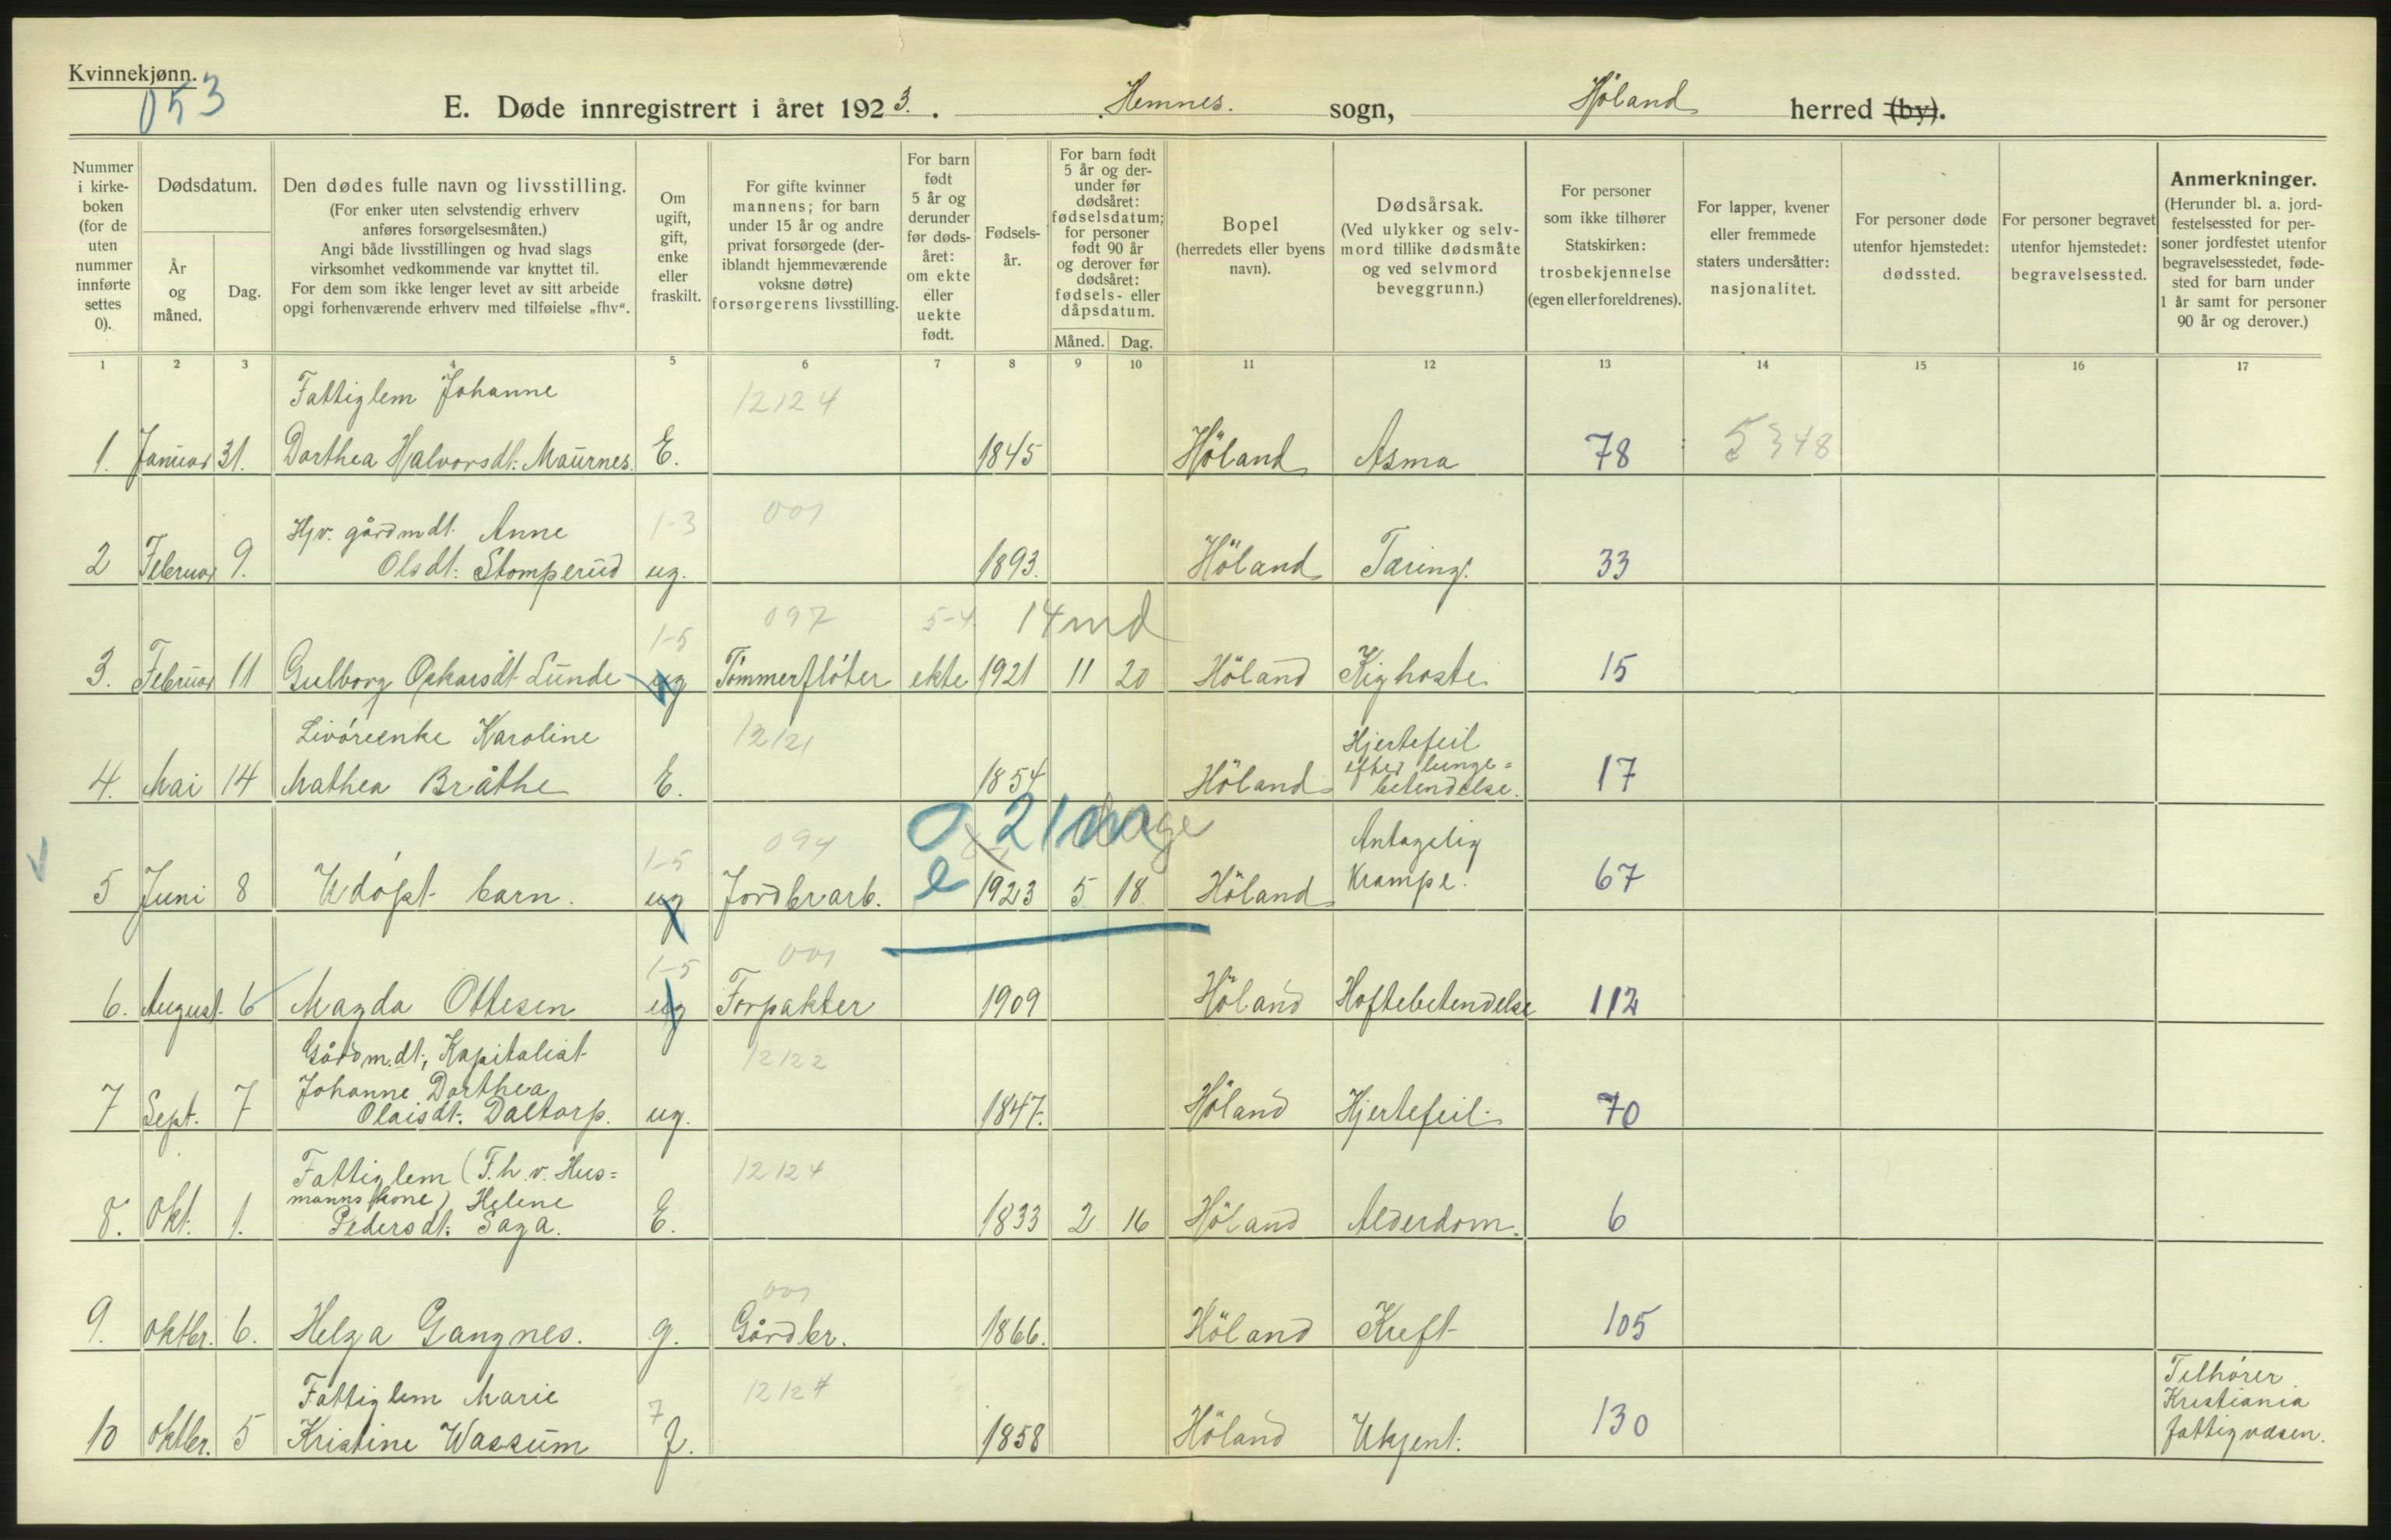 Kvinnekjønn.
053
E. Døde innregistrert i året 1923. Hemnes. sogn, Høland herred (by).
Nummer
i kirke-
boken
(for de
uten
nummer
innførte
settes
0).
Dødsdatum.
År
og
måned.
Dag.
Den dødes fulle navn og livsstilling.
(For enker uten selvstendig erhverv
anføres forsørgelsesmåten.)
Angi både livsstillingen og hvad slags
virksomhet vedkommende var knyttet til.
For dem som ikke lenger levet av sitt arbeide
opgi forhenværende erhverv med tilføielse „fhv“.
Om
ugift,
gift,
enke
eller
fraskilt.
For gifte kvinner
mannens; for barn
under 15 år og andre
privat forsørgede (der-
iblandt hjemmeværende
voksne døtre)
forsørgerens livsstilling.
For barn
født
5 år og
derunder
før døds-
året:
om ekte
eller
uekte
født.
Fødsels-
år.
For barn født
5 år og der-
under før
dødsåret:
fødselsdatum;
for personer
født 90 år
og derover før
dødsåret:
fødsels- eller
dåpsdatum.
Måned. Dag.
Bopel
(herredets eller byens
navn).
Dødsårsak.
(Ved ulykker og selv-
mord tillike dødsmåte
og ved selvmord
beveggrunn.)
For personer
som ikke tilhører
Statskirken:
trosbekjennelse
(egen eller foreldrenes).
For lapper, kvener
eller fremmede
staters undersåtter:
nasjonalitet.
For personer døde
utenfor hjemstedet:
dødssted.
For personer begravet
utenfor hjemstedet:
begravelsessted.
Anmerkninger.
(Herunder bl. a. jord-
festelsessted for per-
soner jordfestet utenfor
begravelsesstedet, føde-
sted for barn under
1 år samt for personer
90 år og derover.)
1 2 3 4 5 6 7 8 9 10 11 12 13 14 15 16 17
Fattiglem Johanne 12124
1. Januar 31. Dorthea Halvorsdt. Maurnes. E. 1845 Höland Asma 78 5348
Hjv. gårdmdt. Anne 1-3 001
2 Februar 9. Olsdt: Stomperud ug. 1893. Höland Tæring. 33
1-5 097 5-4 14 md
3. Februar 11 Gulborg Oskarsdt Lunde ug Tømmerfløter ekte 1921 11 20 Höland Kighoste 15
Livøreenke Karoline 12121 Hjertefeil
efter lunge=
4. Mai 14 Mathea Bråthe E. 1854 Höland betendelse. 17
0 21 dage
1-5 094 Antagelig
5 Juni 8 Udøpt barn. ug Jordbrarb. e 1923 5 18 Höland Krampe. 67
1-5 001
6. August. 6 Magda Ottesen ug Forpakter 1909 Höland Hoftebetendelse 112
Gårdm.dt., Kapitalist 12122
Johanne Dorthea
7 Sept. 7 Olaisdt: Daltorp. ug. 1847. Höland Hjertefeil. 70
Fattiglem (F.h.v. Hus= 12124
manns kone) Helene
8. Okt. 1. Pedersdt: Saga. E. 1833 2 16 Höland Alderdom. 6
001
9. Oktbr. 6. Helga Gangnes. g. Gårdbr. 1866. Höland Kreft 105
Fattiglem Marie 7 12124
10 Oktbr. 5 Kristine Wassum f. 1858 Höland Ukjent. 130
Tilhører
Kristiania
fattigvæsen.